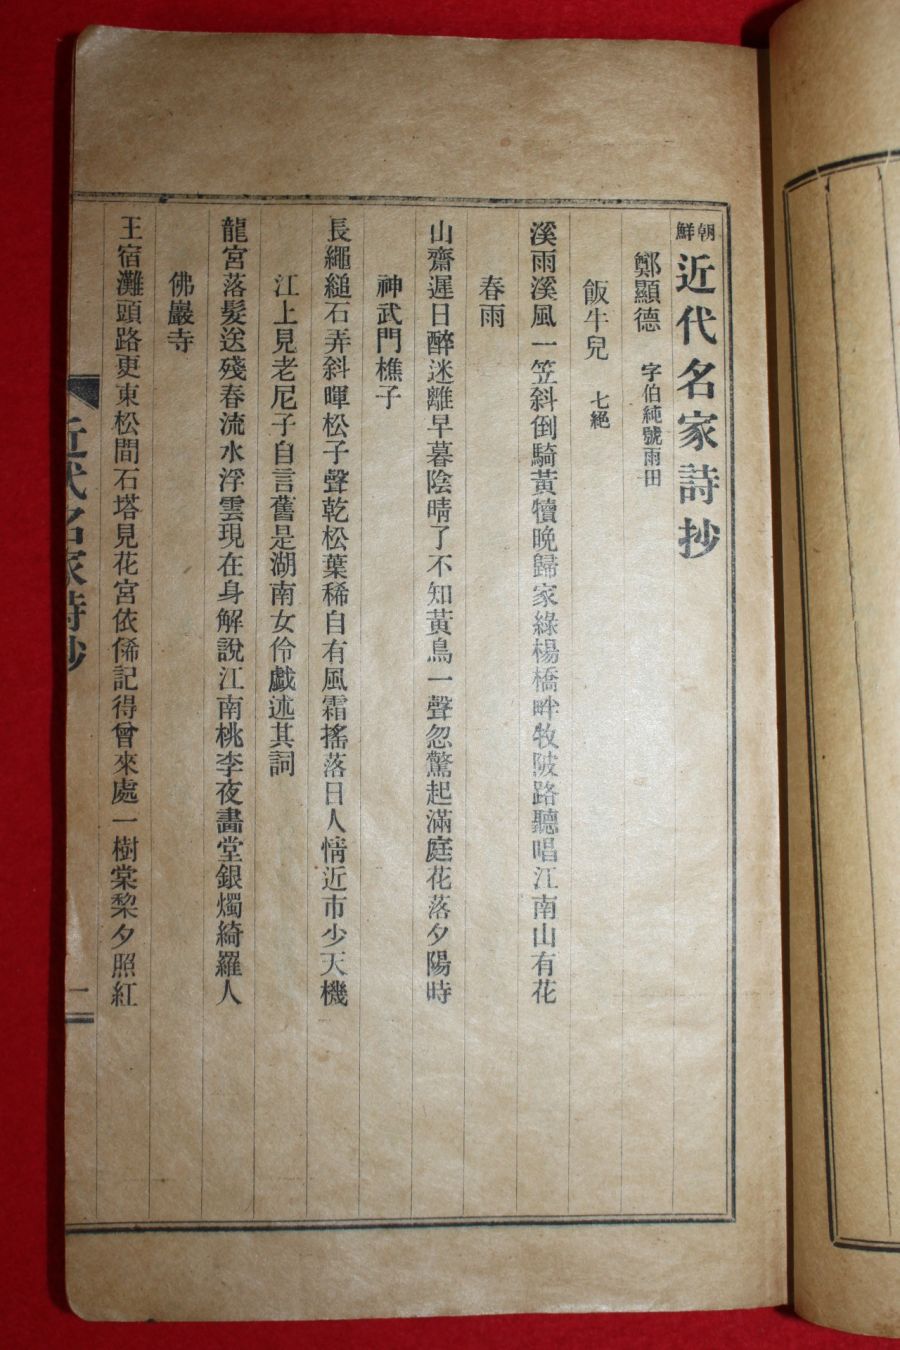 朝鮮近代名家詩抄
鄭顯德 字伯純號雨田
飯牛兒 七絕
溪雨溪風一笠斜倒騎黃犢晩歸家綠楊橋畔牧陂路聽唱江南山有花
春雨
山齋遲日醉迷離早暮陰晴了不知黃鳥一聲忽驚起滿庭花落夕陽時
神武門樵子
長繩縋石弄斜暉松子聲乾松葉稀自有風霜搖落日人情近市少天機
江上見老尼子自言舊是湖南女伶戱述其詞
龍宮落髮送殘春流水浮雲現在身解說江南桃李夜畵堂銀燭綺羅人
佛巖寺
王宿灘頭路更東松間石塔見花宮依俙記得曾來處一樹棠棃夕照紅
近代名家詩抄
一